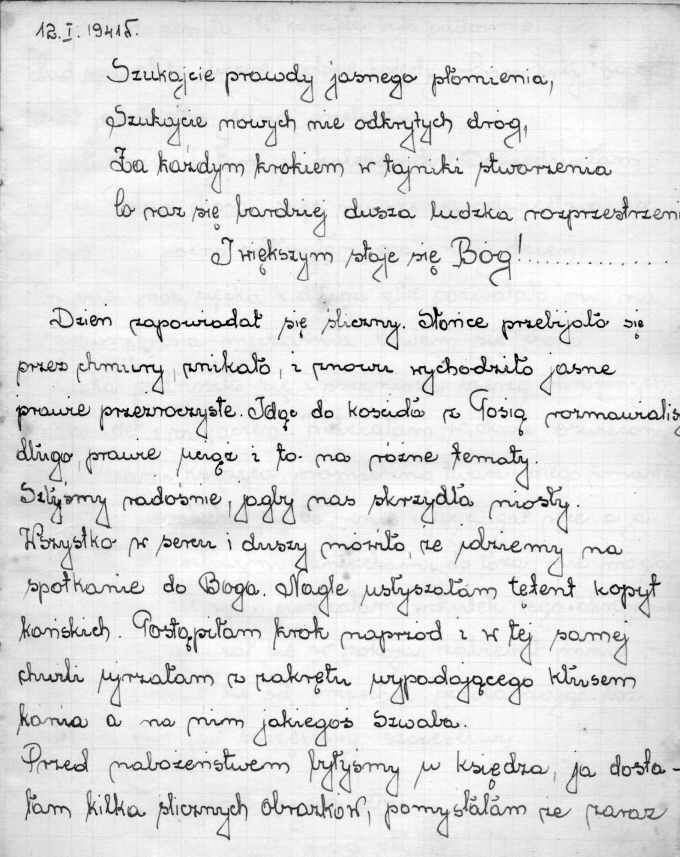 12.I.1941r.
Szukajcie prawdy jasnego płomienia,
Szukajcie nowych nie odkrytych dróg,
Za każdym krokiem w tajniki stworzenia
Co raz się bardziej dusza ludzka rozprzestrzeni
I większym staje się Bóg!..............
Dzień zapowiadał się śliczny. Słońce przebijało się
przez chmury, znikało, i znowu wychodziło jasne
prawie przezroczyste. Idąc do kościoła z Gosią rozmawialiś
długo, prawie wciąż i to na różne tematy.
Szłyśmy radośnie, jagby nas skrzydła niosły.
Wszystko w sercu i duszy mówiło, że idziemy na
spotkanie do Boga. Nagle usłyszałam tętent kopyt
końskich. Postąpiłam krok naprzód i w tej samej
chwili ujrzałam z zakrętu wypadającego kłusem
konia a na nim jakiegoś Szwaba.
Przed nabożeństwem byłyśmy u księdza, ja dosta-
łam kilka ślicznych obrazków, pomyślałam że zaraz